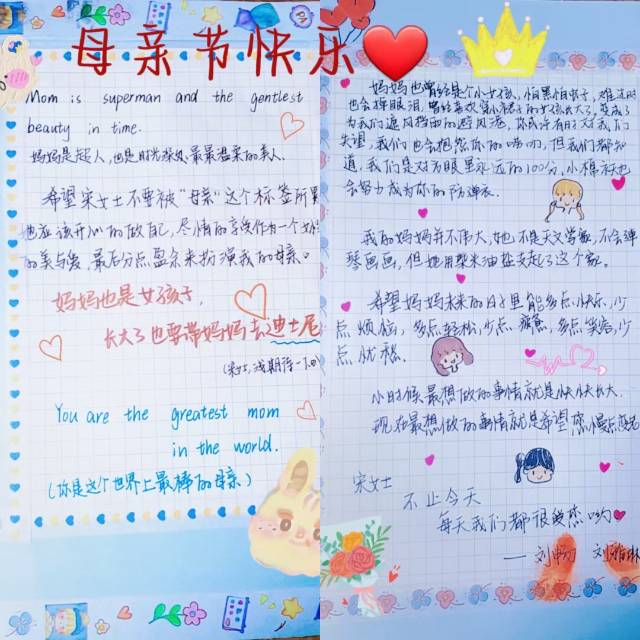 母亲节快乐
Mom is superman and the gentlest
beauty in time.
妈妈是超人,也是时光深处最最温柔的美人.
希望宋女士不要被“母亲”这个标签所累
她应该开心的做自己,尽情的享受作为一个
的美与爱,最后分点盈余来扮演我的母亲。
妈妈也是女孩子,
长大了也要带妈妈去迪士尼
(宋女士,浅期待一下
You are the greatest mom
in the world.
(你是这个世界上最棒的母亲)
妈妈也曾经是个小女孩,怕黑怕虫子,难过时
也会掉眼泪,曾经喜欢穿小裙子的女孩长大了,变成了
为我们遮风挡雨的避风港,你或许有时对我们
失望,我们也会抱怨你的唠叨,但我们都知
道,我们是对方眼里永远的100分,小棉袄也
会努力成为你的防弹衣.
我的妈妈并不伟大,她不是天文学家,不会弹
琴画画,但她用柴米油盐支起了这个家.
希望妈妈未来的日子里能多点快乐,少
点烦恼,多点轻松,少点疲惫,多点笑容,少
点忧愁.
小时候最想做的事情就是快快长大.
现在最想做的事情就是希望您慢点变老
宋女士
不止今天
每天我们都很爱您哟
——刘畅 刘雅琳